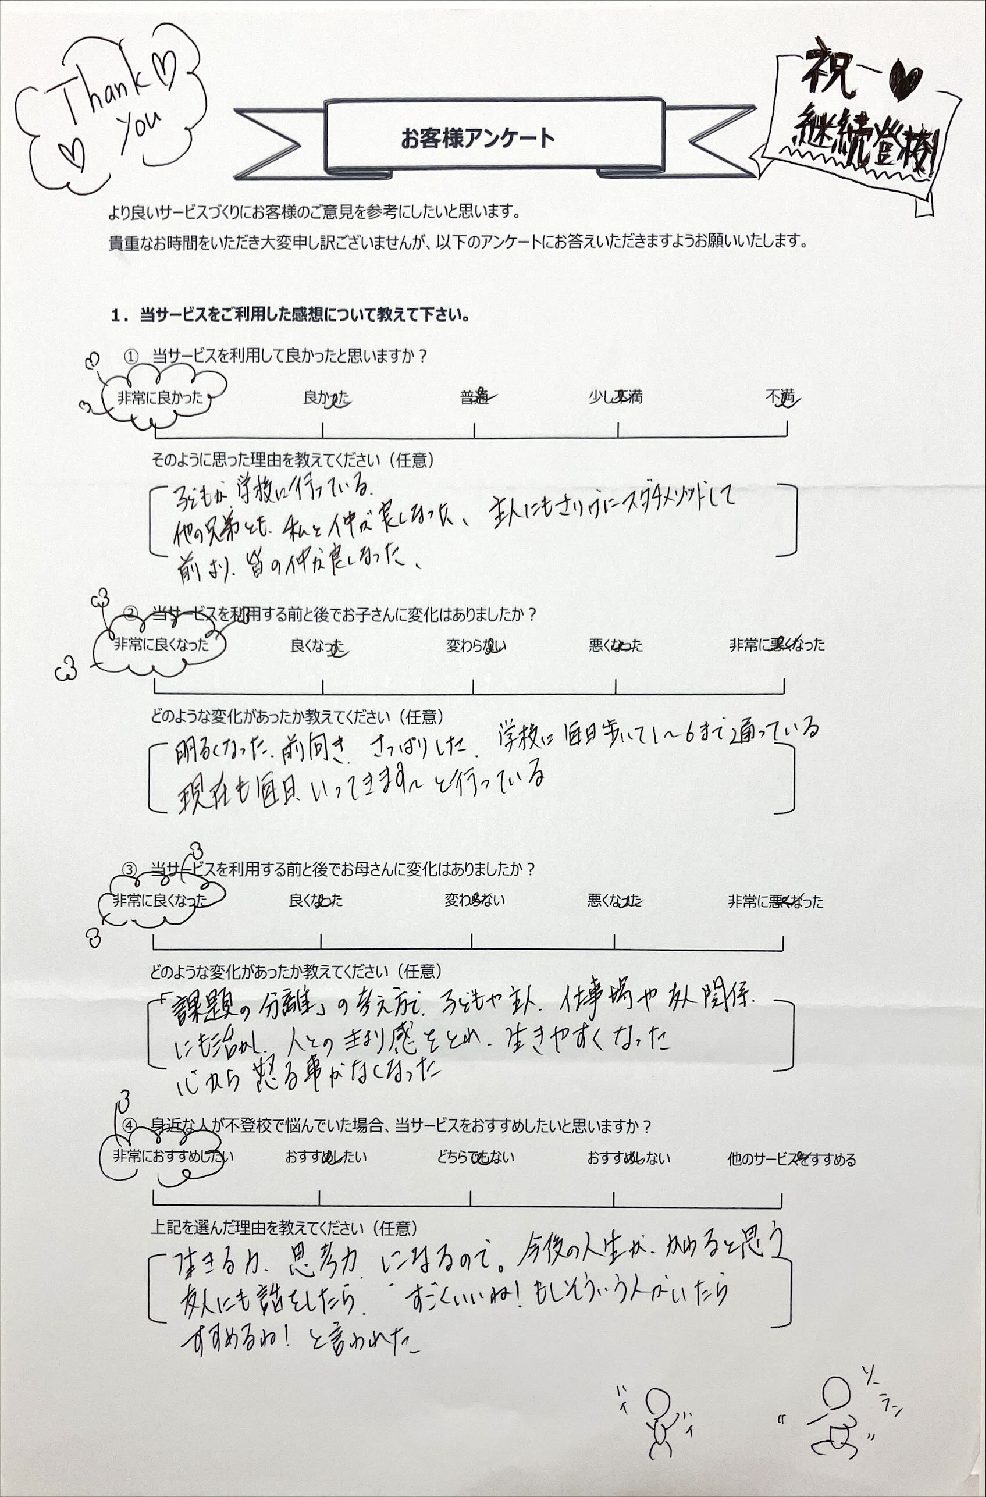 Thank
you
祝
継続登校!
お客様アンケート
より良いサービスづくりにお客様のご意見を参考にしたいと思います。
貴重なお時間をいただき大変申し訳ございませんが、以下のアンケートにお答えいただきますようお願いいたします。
1．当サービスをご利用した感想について教えて下さい。
① 当サービスを利用して良かったと思いますか？
非常に良かった 良かった 普通 少し不満 不満
そのように思った理由を教えてください（任意）
子どもが学校に行っている。
他の兄弟とも、私と仲が良くなった、主人にもさりげにスダチメソッドして
前より、皆の仲が良くなった、
② 当サービスを利用する前と後でお子さんに変化はありましたか？
非常に良くなった 良くなった 変わらない 悪くなった 非常に悪くなった
どのような変化があったか教えてください（任意）
明るくなった、前向き、さっぱりした、学校に毎日歩いて1〜6まで通っている
現在も毎日、いってきます〜と行っている
③ 当サービスを利用する前と後でお母さんに変化はありましたか？
非常に良くなった 良くなった 変わらない 悪くなった 非常に悪くなった
どのような変化があったか教えてください（任意）
「課題の分離」の考え方で、子どもや主人、仕事場や友人関係、
にも活かし、人とのきより感をとれ、生きやすくなった
心から怒る事がなくなった
④ 身近な人が不登校で悩んでいた場合、当サービスをおすすめしたいと思いますか？
非常におすすめしたい おすすめしたい どちらでもない おすすめしない 他のサービスをすすめる
上記を選んだ理由を教えてください（任意）
生きる力、思考力、になるので。今後の人生が、かわると思う
友人にも話をしたら、「すごくいいね！もしそういう人がいたら
すすめるね！と言われた
ハイ
ハイ
ソー
ラン